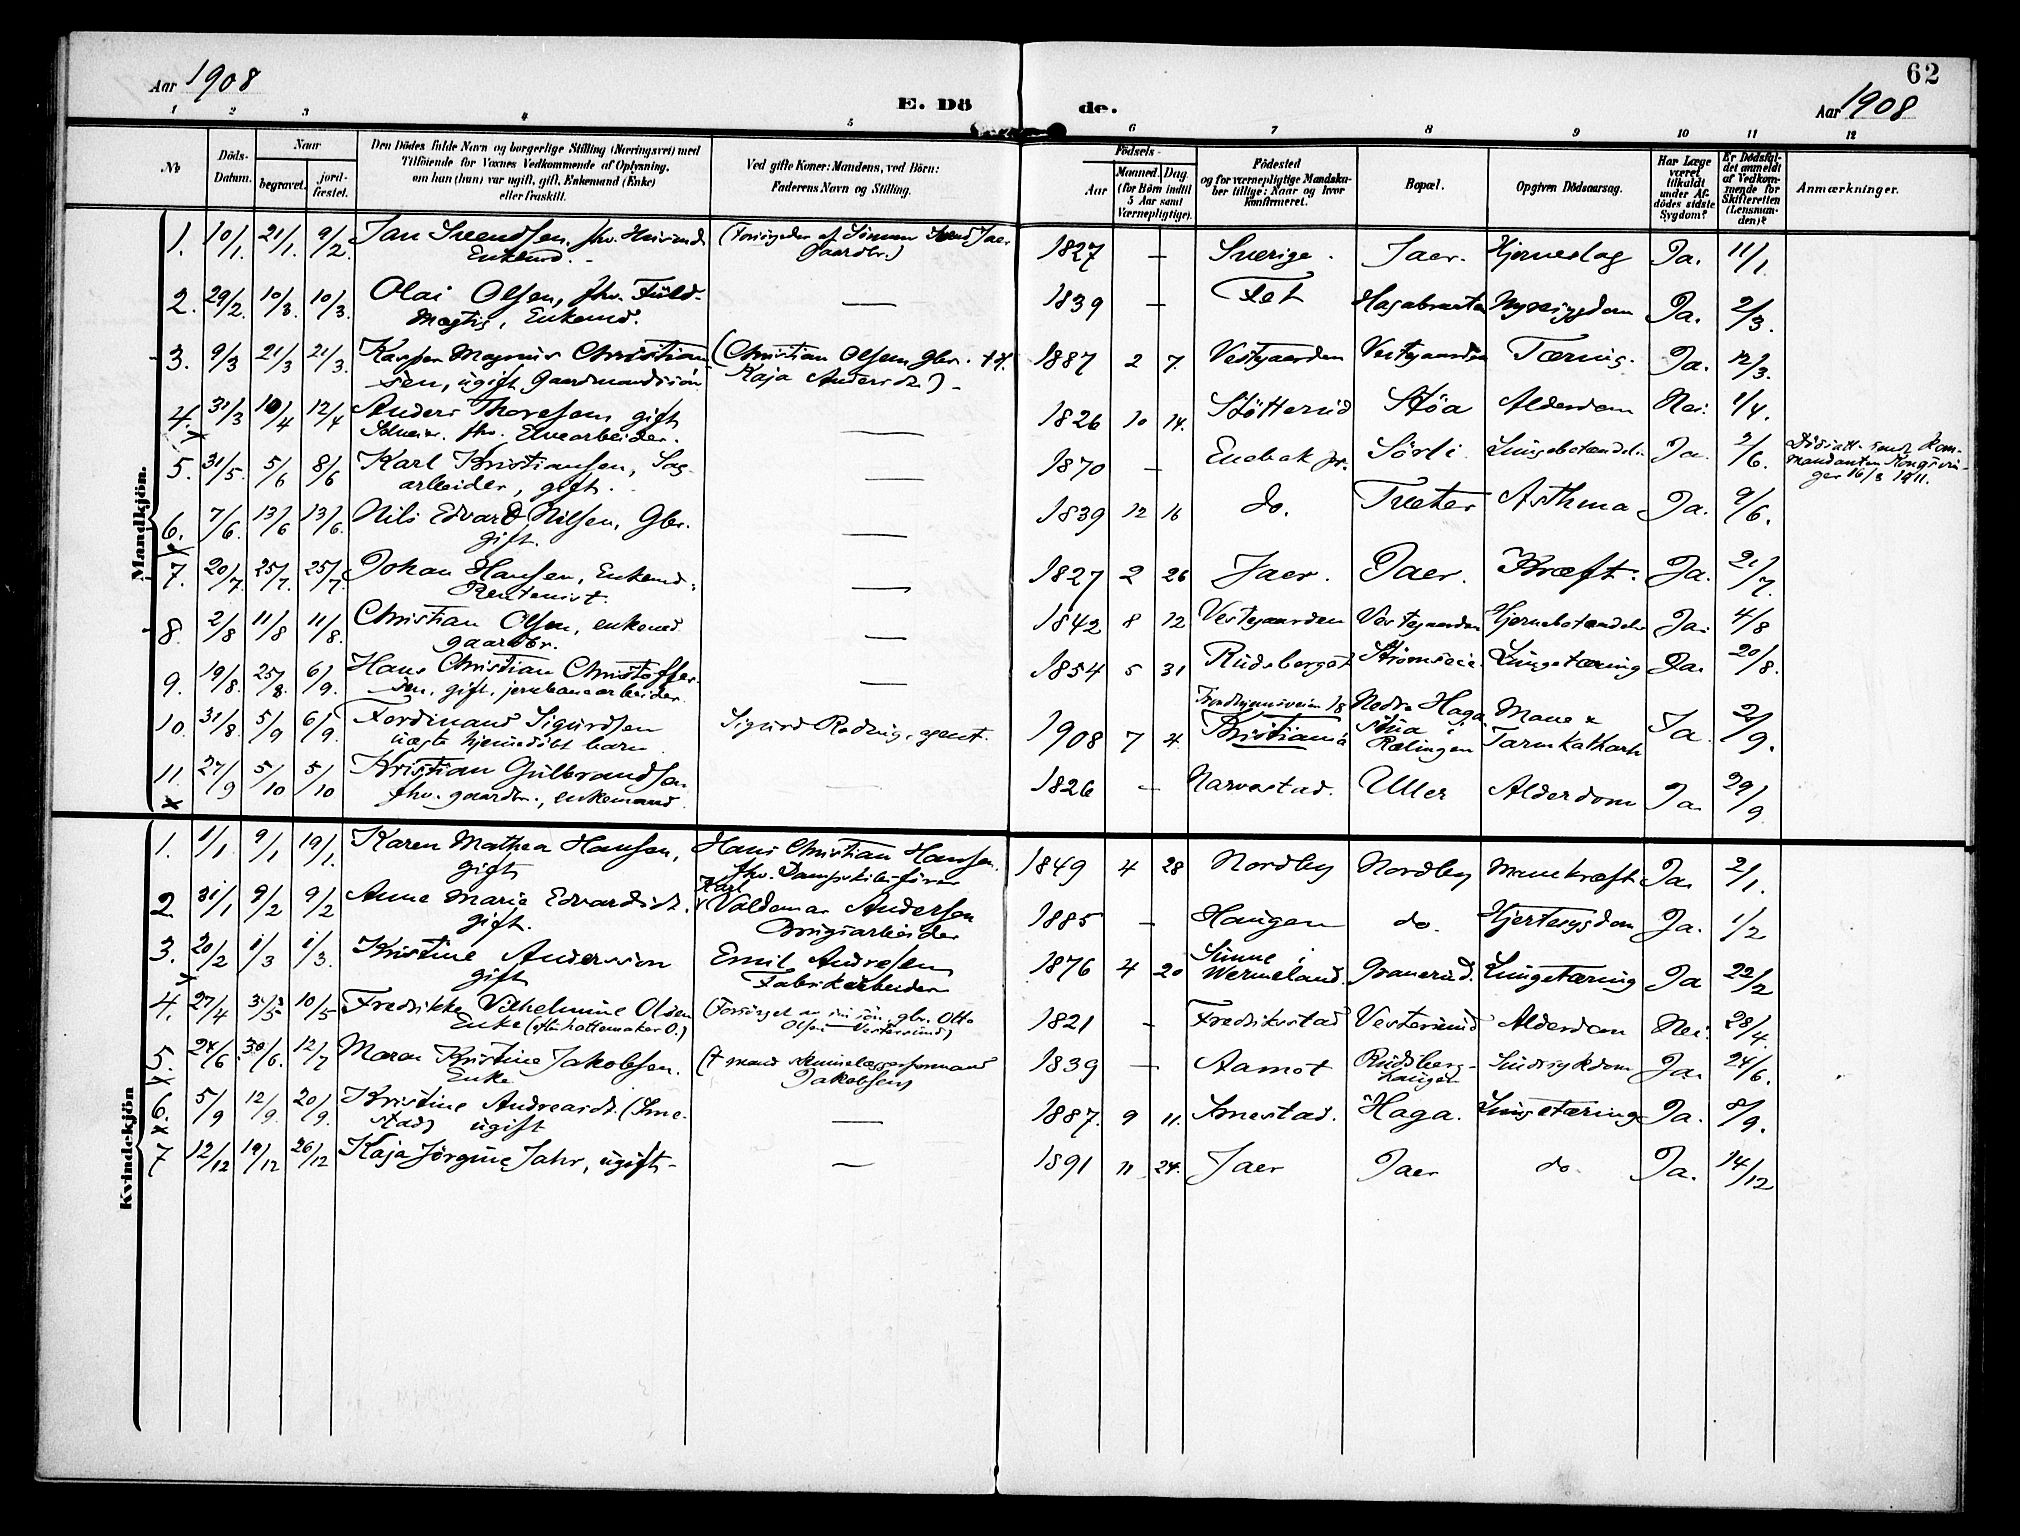 62
Aar 1908
E. Dö de.
Aar 1908
1 2 3 4 5 6 7 8 9 10 11 12
No
Döds-Datum.
Naar
begravet.
jord-fæstet.
Den Dödes fulde Navn og borgerlige Stilling (Næringsvei) med
Tilföiende for Voxnes Vedkommende af Oplysning,
om han (hun) var ugift, gift, Enkemand (Enke)
eller fraskilt.
Ved gifte Koner: Mandens, ved Börn:
Faderens Navn og Stilling.
Födsels-
Aar
Maaned. Dag.
(for Börn indtil
5 Aar samt
Værnepligtige).
Födested
og for værnepligtige Mandska-
ber tillige: Naar og hvor
konfirmeret.
Bopæl.
Opgiven Dödsaarsag.
Har Læge
været
tilkaldt
under Af-
dödes sidste
Sygdom?
Er Dödsfal-
det anmeldt
af Vedkom-
mende for
Skifteretten
(Lensman-
den)?
Anmærkninger.
Mandkjön.
1. 10/1. 21/1. 9/2. Jan Svendsen, fhv. Enkemd. Jaer Gaardbr.) 1827 — Sverige. Jaer. Hjerneslag Ja. 11/1.
2. 29/2. 10/3. 10/3. Olai Olsen, fhv. Fuld-
mægtig, Enkemd. — 1839 — Fet Nyresygdom Ja. 2/3.
3. 9/3 21/3 21/3. Kasper Magnus Christian-
sen, ugift, Gaardmandssön (Christian Olsen, Gbr.
Kaja Andersdt.) 1887 2 7. Vestgaarden Vestgaarden Tæring. Ja. 12/3.
4. 31/3 10/4 12/4 Anders Thoresen, gift
fhv. Elvearbeider. — 1826 10 14. Stötterud Stöa Alderdom Nei. 1/4.
5. 31/5. 5/6 8/6 Karl Kristiansen, Sag-
arbeider, gift. — 1870 — Enebak pr. Sörli Lungebetændelse Ja. 2/6. Dödsatt. sendt Kom-
mandanten Kongsvin-
ger 16/3 1911.
6. 7/6. 13/6 13/6. Nils Edvard Nilsen, Gbr.
gift. — 1839 12 16 do. Træter Asthma Ja. 9/6.
7. 20/7. 25/7. 25/7. Johan Hansen, Enkemd.
Rentenist. — 1827 2 26 Jaer. Jaer. Kræft. Ja. 21/7.
8. 2/8 11/8 11/8. Christian Olsen, enkemd.
gaardbr. — 1842 8 12 Vestgaarden Vestgaarden Hjernebetændelse Ja. 4/8
9. 19/8. 25/8. 6/9. Hans Christian Christoffer-
sen, gift, jernbanearbeider. — 1854 5 31 Rudsberget Lungetæring Ja. 20/8.
10. 31/8. 5/9 6/9. Ferdinand Sigurdsen
uægte hjemmedöbt barn Sigurd Roding, agent. 1908 7 4. Trondhjemsveien 18
Kristiania Nedre Haga
Stua i
Rælingen Mave &
Tarmkatharh Ja. 2/9.
11. 27/9 5/10 5/10 Kristian Gulbrandsen
fhv. gaardbr., enkemand — 1826 — Narvestad. Uller Alderdom Ja. 29/9
Kvindekjön
1. 1/1 9/1 19/1. Karen Mathea Hansen,
gift Hans Christian Hansen.
fhv. Dampskibsförer 1849 4 28 Nordby Nordby Mavekræft Ja. 2/1.
2 31/1 9/2 9/2 Anne Marie Edvardsdt.
gift. Karl
Valdemar Andersen
Brugsarbeider 1885 — Haugen do. Hjertesygdom Ja. 1/2
3. 20/2 1/3 1/3. Kristine Andersson
gift Emil Andresen
Fabrikarbeider 1876 4 20 Sunne i
Wermeland. Granerud. Lungetæring Ja 22/2
4. 27/4 10/5 Fredrikke Vilhelmine Olsen
Enke (efter hattemaker O.) (Forsörget av sin sön, gbr. Otto
Olsen Vestersund) 1821 — Fredrikstad Vestersund Alderdom Nei. 28/4.
5. 24/6. 30/6. 12/7 Maren Kristine Jakobsen.
Enke († mand
Jakobsen) 1839 — Aamot Rudsberg-
haugen Sindssykdom Ja. 24/6.
6. 5/9 12/9. 20/9. Kristine Andreasdt. (Sme-
stad) ugift — 1887. 9 11. Smestad. Haga. Lungetæring Ja. 8/9.
7 12/12 19/12 26/12 Kaja Jörgine Jahr, ugift — 1891 11 24. Jaer Jaer do. Ja. 14/12